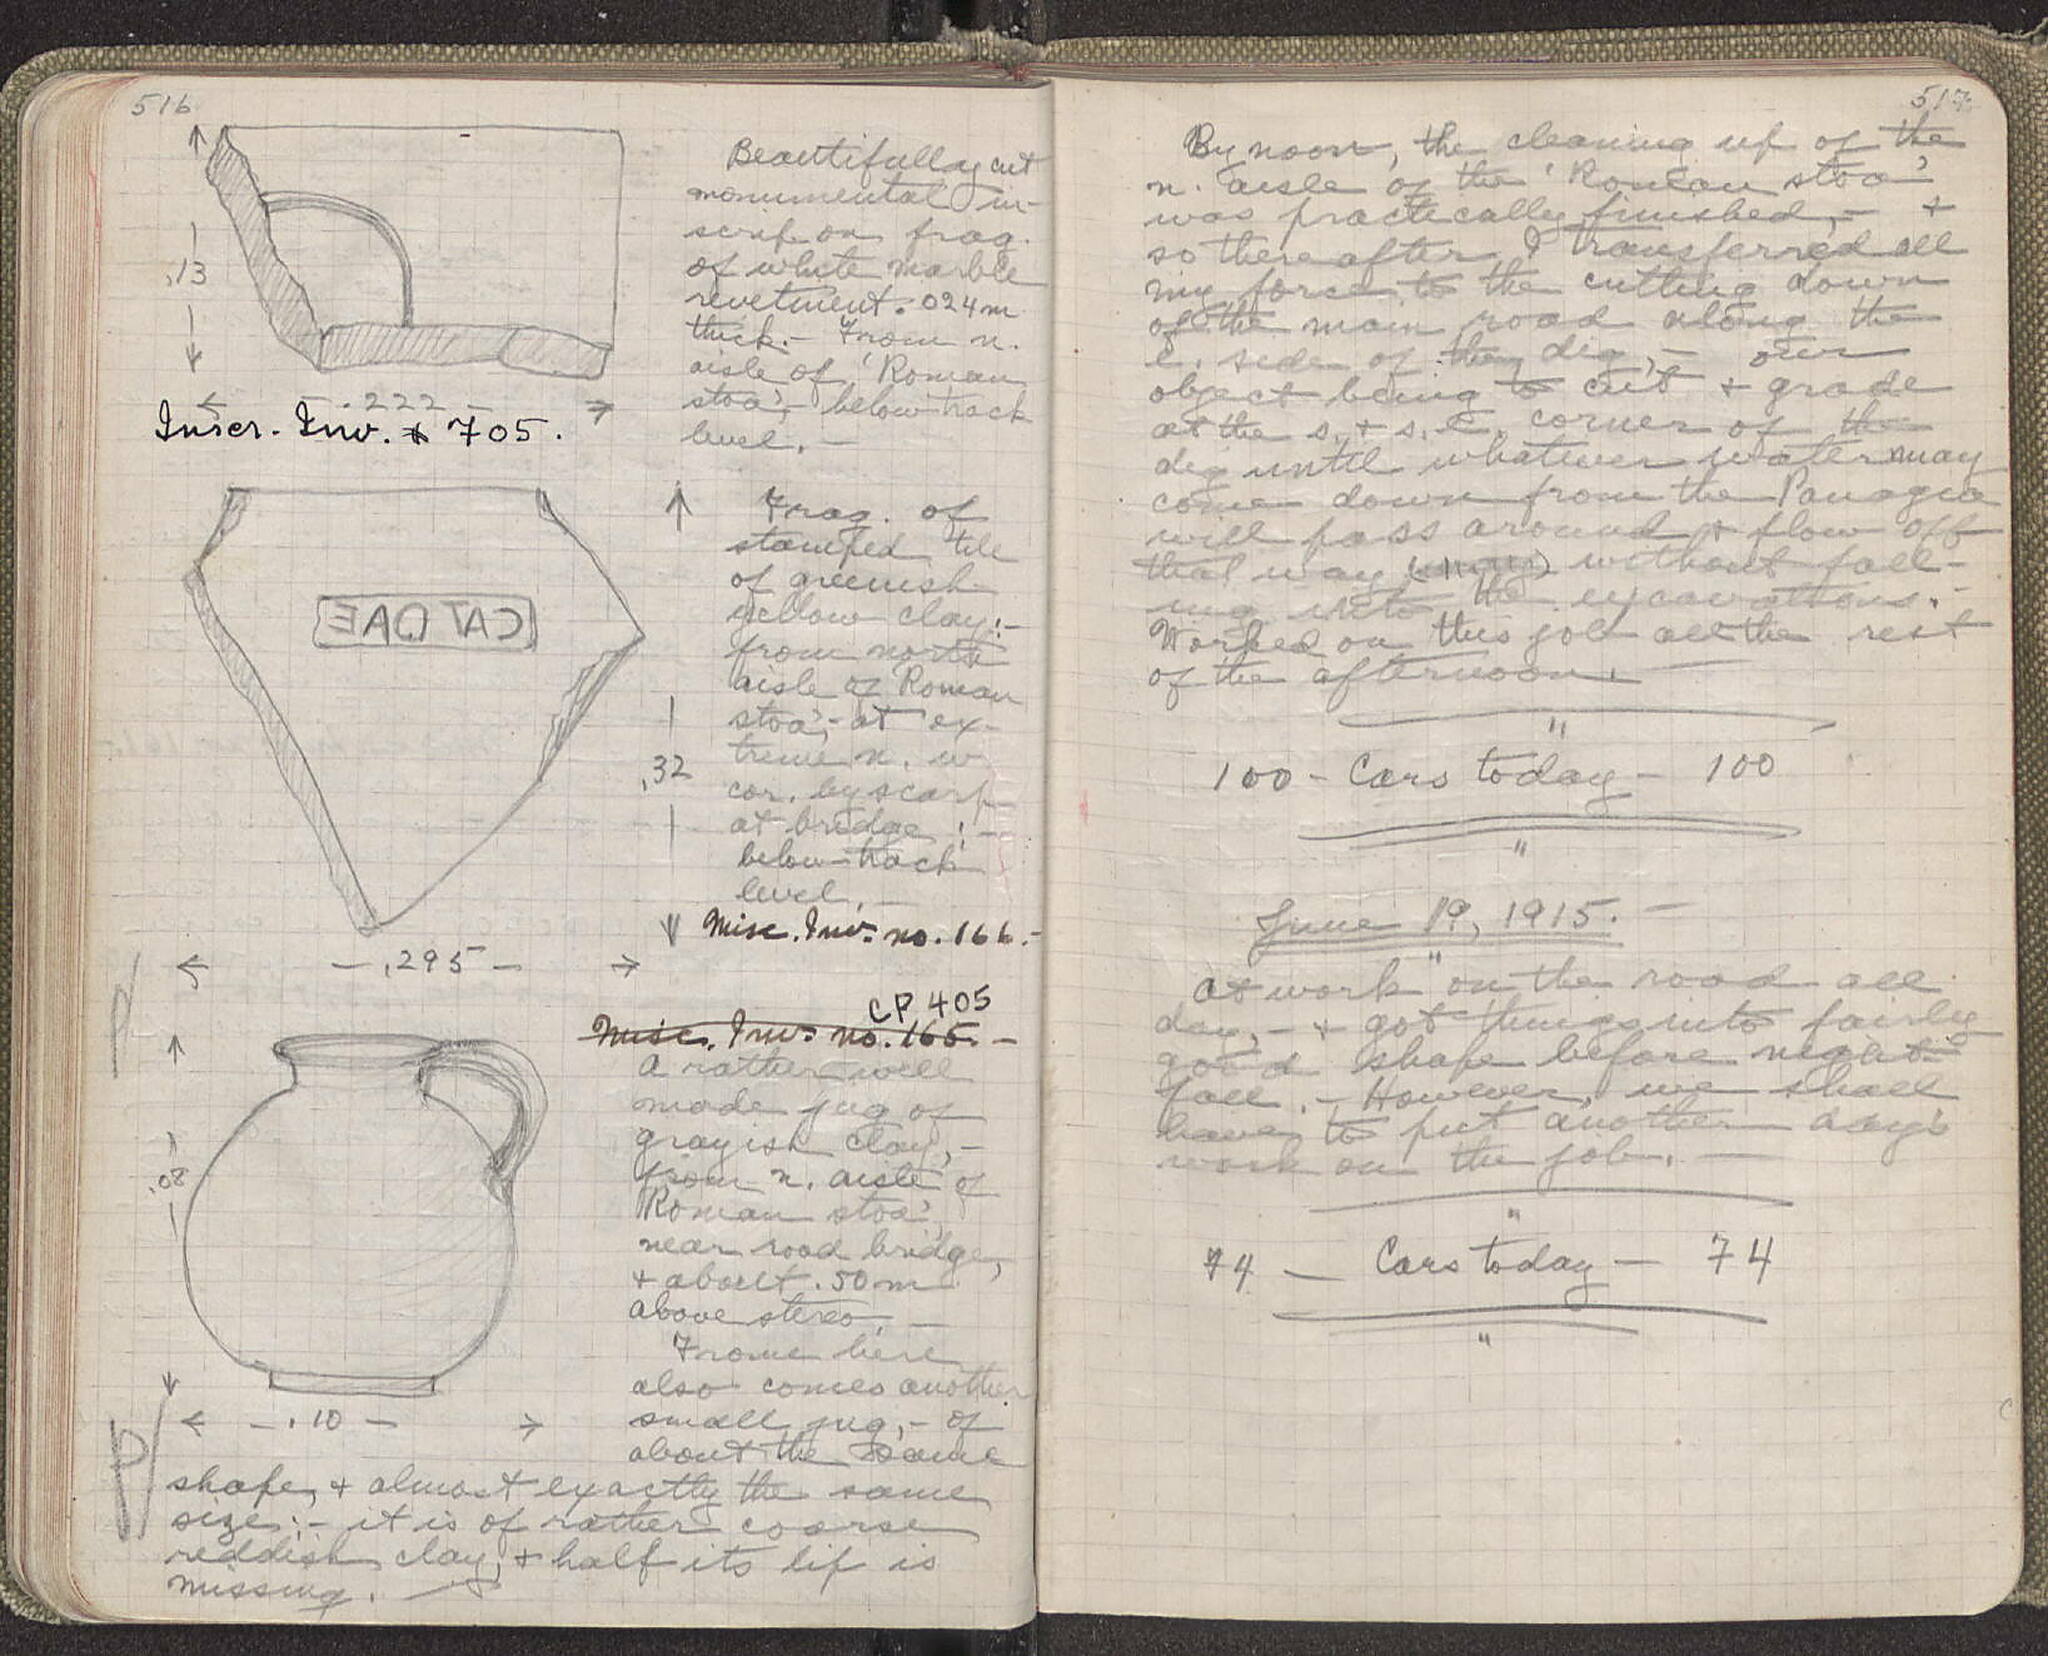 516
Beautifully cut
monumental in-
scrip. on frag.
of white marble
revetment. .024m
thick. – From n.
aisle of 'Roman
stoa', – below track
level. –
.13
.222
Inscr. Inv. # 705.
Frag. of
stamped tile
of greenish
yellow clay: –
from north
aisle of 'Roman
stoa', – at ex-
treme n. w
cor. by scarp
at bridge; –
below track
level. –
CAT DAE
.32
Misc. Inv. no. 166. –
– .295 –
P/
CP 405
Misc. Inv. no. 165. –
A rather well
made jug of
grayish clay, –
from n. aisle of
'Roman stoa',
near road bridge,
+ about .50 m
above stereo. –
From here
also comes another
small jug, – of
about the same
shape, + almost exactly the same
size: – it is of rather coarse
reddish clay, + half its lip is
missing. –
.08
– .10 –
P/
517
By noon, the cleaning up of the
n. aisle of the 'Roman stoa'
was practically finished, – +
so thereafter I transferred all
my force to the cutting down
of the main road along the
e. side of the dig, – our
object being to cut + grade
at the s. + s. e. corner of the
dig until whatever water may
come down from the Panagia
will pass around + flow off
that way without fall-
ing into the excavations. –
Worked on this job all the rest
of the afternoon.
"
100 – Cars today – 100
"
June 19, 1915. –
"
At work on the road all
day, – + got things into fairly
good shape before night-
fall. – However, we shall
have to put another day's
work on the job. –
"
74 – Cars today – 74
"